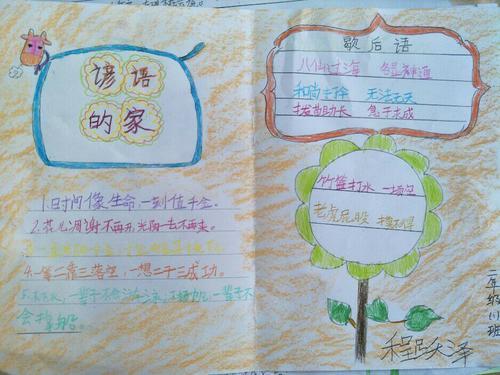 谚语
的家
1.时间像生命,一刻值千金。
2.花儿凋谢不再开,光阴一去不再来。
4.一等二靠三落空,一想二干三成功。
一辈子不会游泳
一辈子不
会撑船。
歇后语
八仙过海 各显神通
和尚打伞 无法无天
拔苗助长 急于求成
竹篮打水 一场空
老虎屁股 摸不得
二年级(1)班
程跃泽